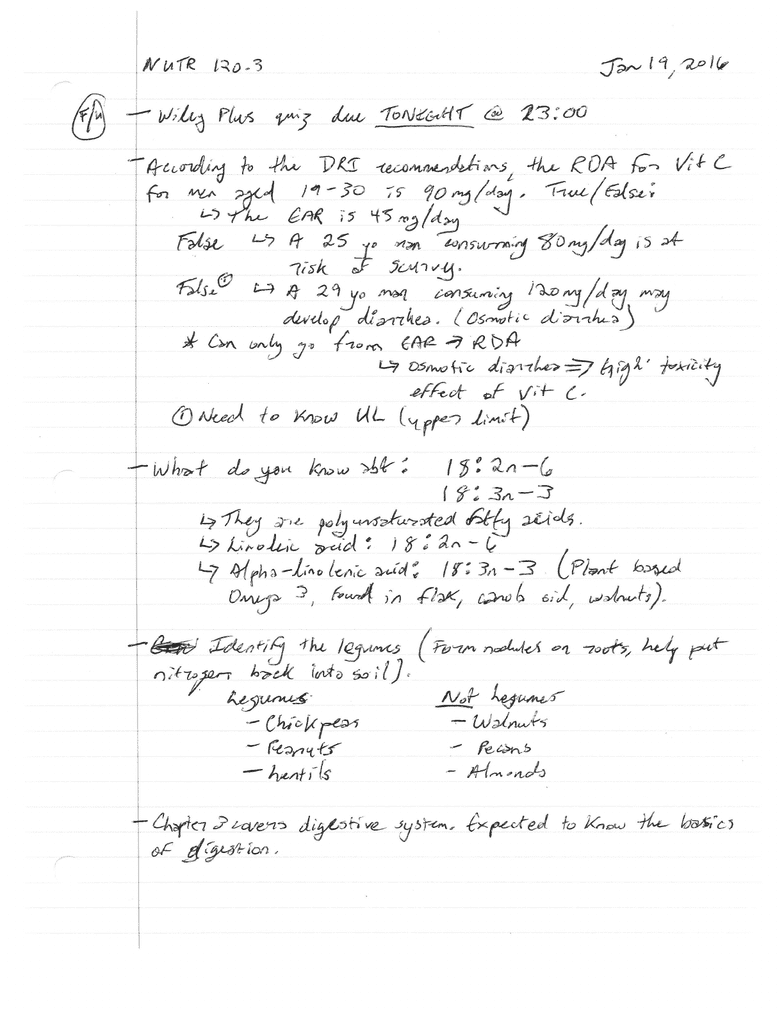 NUTR 120.3 Jan 19, 2016
F/U - Wiley Plus quiz due TONIGHT @ 23:00
- According to the DRI recommendations, the RDA for Vit C
for men aged 19-30 is 90 mg/day. True/False:
↳ The EAR is 45 mg/day
False ↳ A 25 yo man consuming 80 mg/day is at
risk of scurvy.
False① ↳ A 29 yo man consuming 120 mg/day may
develop diarrhea. (Osmotic diarrhea)
* Can only go from EAR → RDA
↳ Osmotic diarrhea ⇒ High toxicity
effect of Vit C.
① Need to know UL (upper limit)
- What do you know abt: 18:2n-6
18:3n-3
↳ They are polyunsaturated fatty acids.
↳ Linoleic acid: 18:2n-6
↳ Alpha-linolenic acid: 18:3n-3 (Plant based
Omega 3, found in flax, oil, walnuts).
- Identify the legumes (Form nodules on roots, help put
nitrogen back into soil).
Legumes Not Legumes
- Chickpeas - Walnuts
- Peanuts - Pecans
- Lentils - Almonds
- Chapter 3 covers digestive system. Expected to know the basics
of digestion.